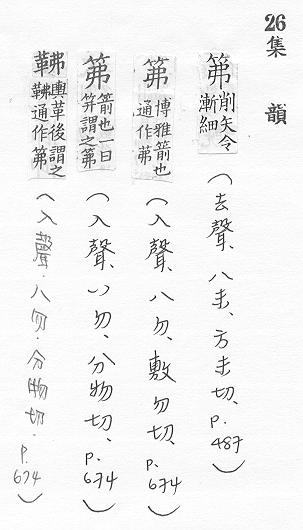 26集韻
笰削矢令漸細(去聲、八未、方未切、p.487)
笰博雅箭也通作茀(入聲、八勿、敷勿切、p.674)
笰箭也一曰笄謂之笰(入聲、八勿、分物切、p.674)
䩛輿革後謂之䩛通作笰(入聲、八勿、分物切、p.674)